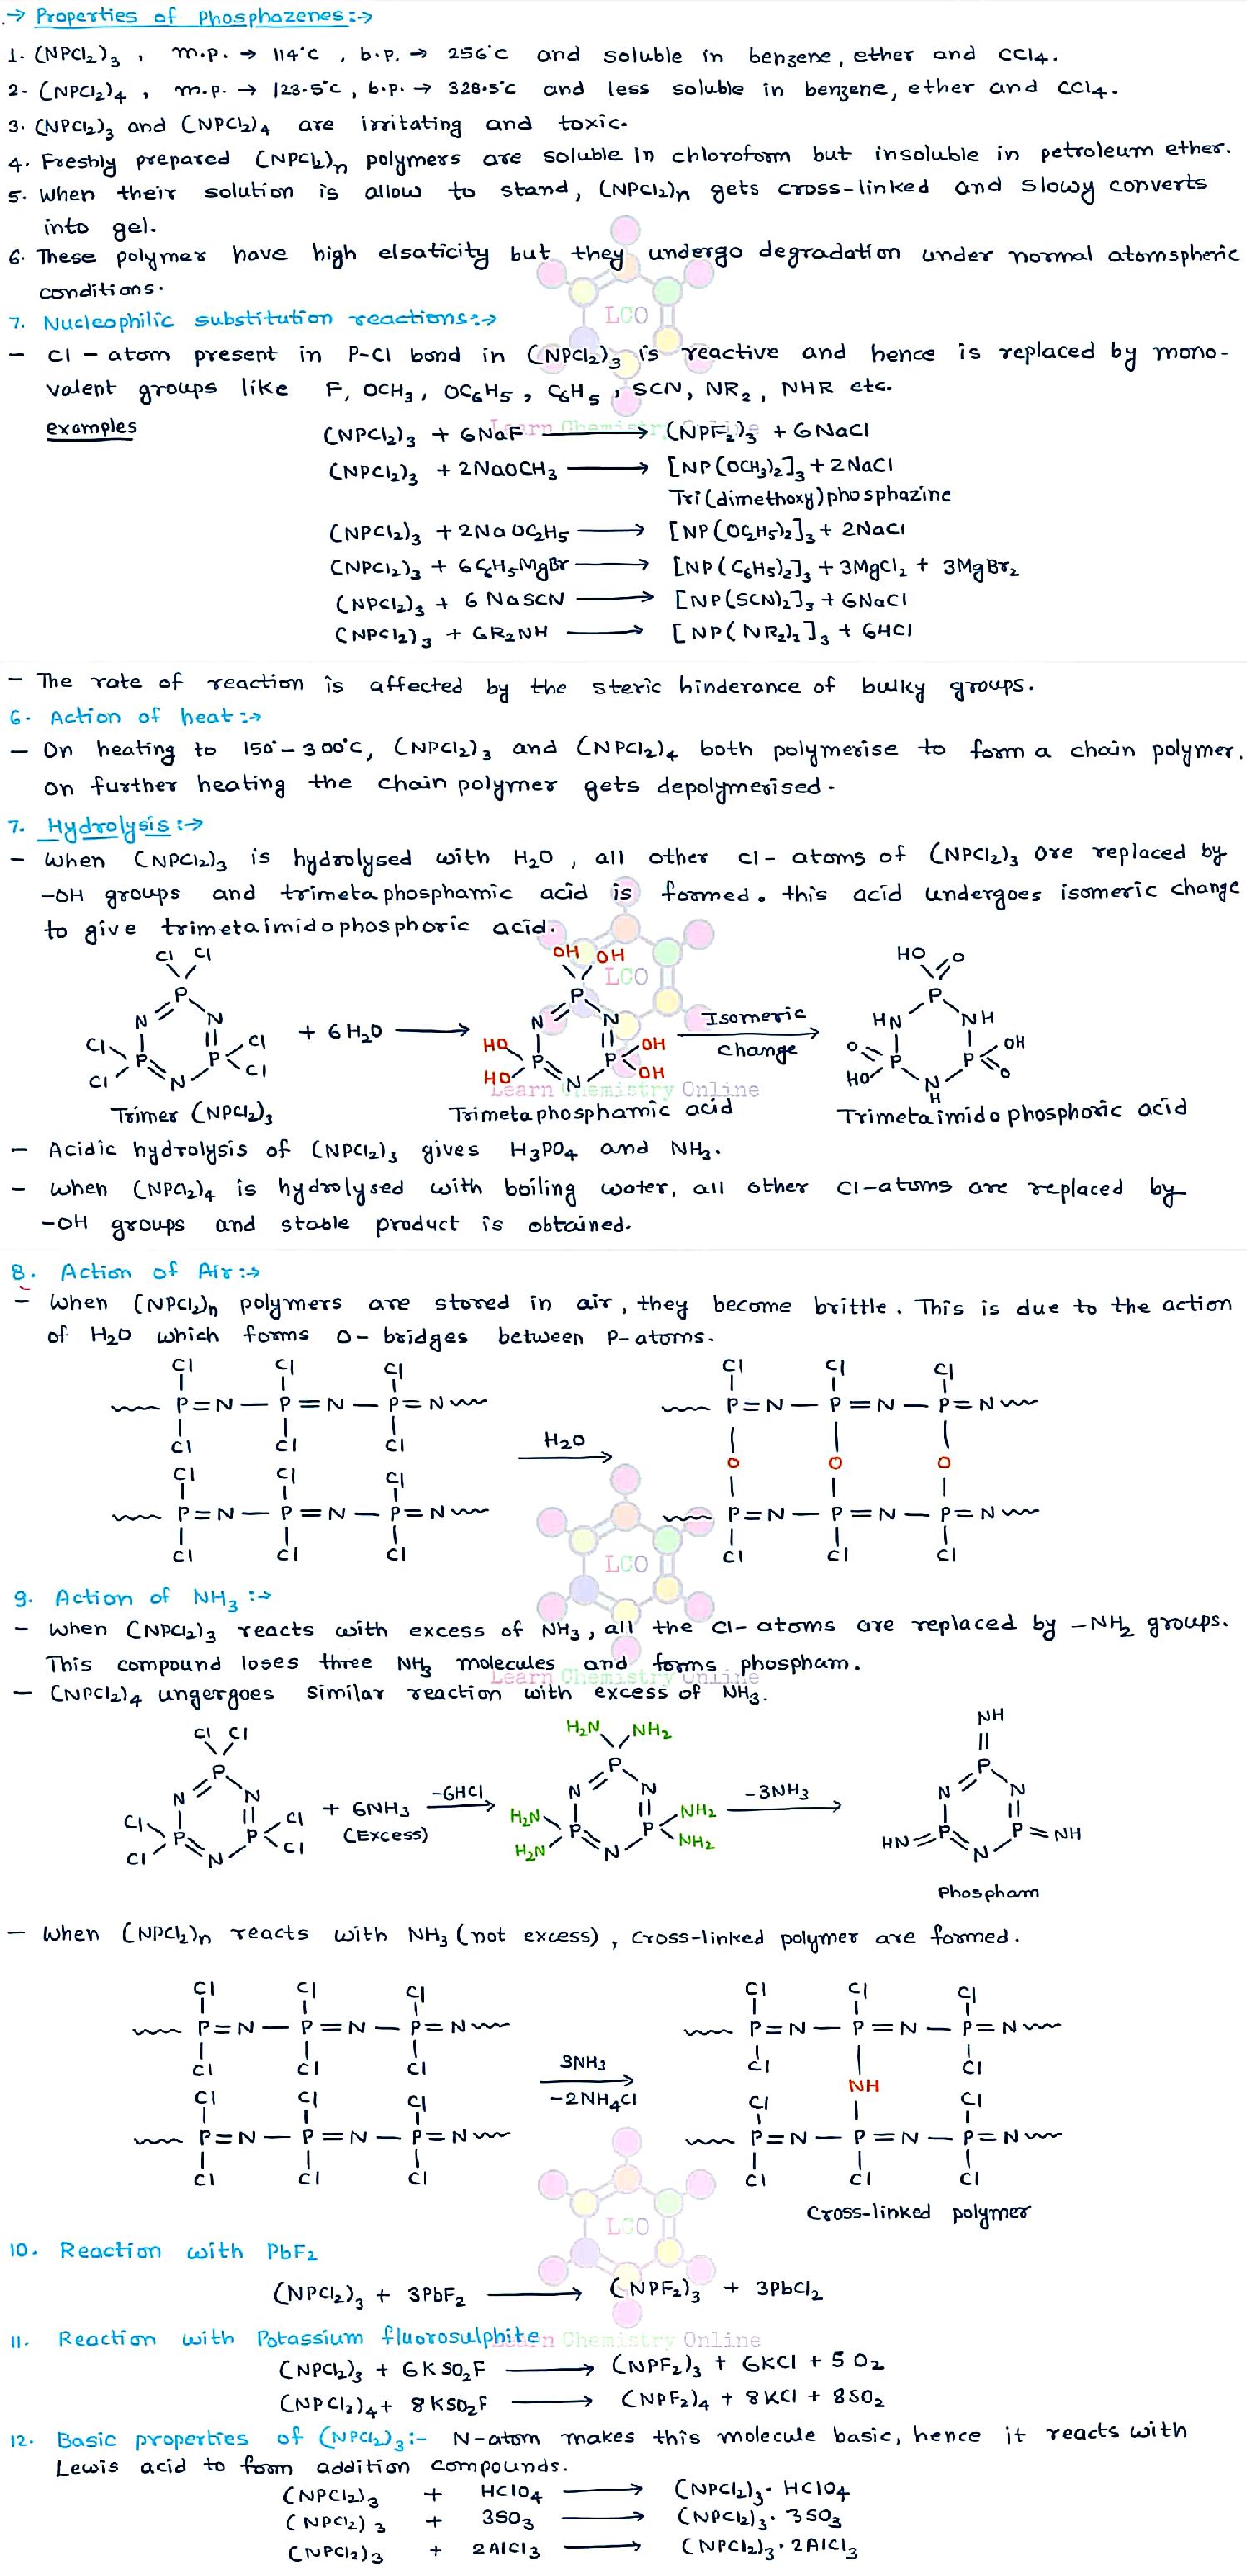 → Properties of Phosphazenes:→
1. (NPCl₂)₃ , m.p. → 114°C , b.p. → 256°C and soluble in benzene, ether and CCl4.
2- (NPCl₂)₄ , m.p. → 123.5°C , b.p. → 328.5°C and less soluble in benzene, ether and CCl4.
3. (NPCl₂)₃ and (NPCl₂)₄ are irritating and toxic.
4. Freshly prepared (NPCl₂)n polymers are soluble in chloroform but insoluble in petroleum ether.
5. When their solution is allow to stand, (NPCl₂)n gets cross-linked and slowy converts
into gel.
6. These polymer have high elsaticity but they undergo degradation under normal atomspheric
conditions.
7. Nucleophilic substitution reactions:→
– Cl – atom present in P-Cl bond in (NPCl₂)₃ is reactive and hence is replaced by mono-
valent groups like F, OCH₃, OC₆H₅, C₆H₅, SCN, NR₂, NHR etc.
examples
(NPCl₂)₃ + 6NaF ⟶ (NPF₂)₃ + 6NaCl
(NPCl₂)₃ + 2NaOCH₃ ⟶ [NP(OCH₃)₂]₃ + 2NaCl
Tri(dimethoxy)phosphazine
(NPCl₂)₃ + 2NaOC₂H₅ ⟶ [NP(OC₂H₅)₂]₃ + 2NaCl
(NPCl₂)₃ + 6C₆H₅MgBr ⟶ [NP(C₆H₅)₂]₃ + 3MgCl₂ + 3MgBr₂
(NPCl₂)₃ + 6NaSCN ⟶ [NP(SCN)₂]₃ + 6NaCl
(NPCl₂)₃ + 6R₂NH ⟶ [NP(NR₂)₂]₃ + 6HCl
– The rate of reaction is affected by the steric hinderance of bulky groups.
6. Action of heat:→
– On heating to 150°–300°C, (NPCl₂)₃ and (NPCl₂)₄ both polymerise to form a chain polymer.
on further heating the chain polymer gets depolymerised.
7. Hydrolysis:→
– When (NPCl₂)₃ is hydrolysed with H₂O, all other cl- atoms of (NPCl₂)₃ are replaced by
-OH groups and trimetaphosphamic acid is formed. this acid undergoes isomeric change
to give trimetaimidophosphoric acid.
Cl Cl OH OH HO O
P P P
N N N N HN NH
Cl Cl + 6H₂O ⟶ HO OH Isomeric change ⟶ O OH
P P P P P P
Cl N Cl HO N OH HO N H O
Trimer (NPCl₂)₃ Trimetaphosphamic acid Trimetaimidophosphoric acid
– Acidic hydrolysis of (NPCl₂)₃ gives H₃PO₄ and NH₃.
– When (NPCl₂)₄ is hydrolysed with boiling water, all other Cl-atoms are replaced by
-OH groups and stable product is obtained.
8. Action of Air:→
– When (NPCl₂)n polymers are stored in air, they become brittle. This is due to the action
of H₂O which forms O- bridges between P-atoms.
Cl Cl Cl Cl Cl Cl
P=N–P=N–P=N P=N–P=N–P=N
Cl Cl Cl H₂O ⟶ O O O
Cl Cl Cl
P=N–P=N–P=N P=N–P=N–P=N
Cl Cl Cl Cl Cl Cl
9. Action of NH₃:→
– When (NPCl₂)₃ reacts with excess of NH₃, all the Cl- atoms are replaced by -NH₂ groups.
This compound loses three NH₃ molecules and forms phospham.
– (NPCl₂)₄ ungergoes similar reaction with excess of NH₃.
Cl Cl H₂N NH₂ NH
P P P
N N N N N N
Cl Cl + 6NH₃ (Excess) –6HCl ⟶ H₂N NH₂ –3NH₃ ⟶
P P P P HN=P P=NH
Cl N Cl H₂N N NH₂ N
Phospham
– When (NPCl₂)n reacts with NH₃ (not excess), cross-linked polymer are formed.
Cl Cl Cl Cl Cl Cl
P=N–P=N–P=N P=N–P=N–P=N
Cl Cl Cl 3NH₃ ⟶ –2NH₄Cl Cl NH Cl
Cl Cl Cl Cl Cl
P=N–P=N–P=N P=N–P=N–P=N
Cl Cl Cl Cl Cl Cl
Cross-linked polymer
10. Reaction with PbF₂
(NPCl₂)₃ + 3PbF₂ ⟶ (NPF₂)₃ + 3PbCl₂
11. Reaction with Potassium fluorosulphite
(NPCl₂)₃ + 6KSO₂F ⟶ (NPF₂)₃ + 6KCl + 5O₂
(NPCl₂)₄ + 8KSO₂F ⟶ (NPF₂)₄ + 8KCl + 8SO₂
12. Basic properties of (NPCl₂)₃:- N-atom makes this molecule basic, hence it reacts with
Lewis acid to form addition compounds.
(NPCl₂)₃ + HClO4 ⟶ (NPCl₂)₃. HClO4
(NPCl₂)₃ + 3SO₃ ⟶ (NPCl₂)₃. 3SO₃
(NPCl₂)₃ + 2AlCl₃ ⟶ (NPCl₂)₃. 2AlCl₃
LCO
Learn Chemistry Online
LCO
Learn Chemistry Online
LCO
Learn Chemistry Online
LCO
Learn Chemistry Online